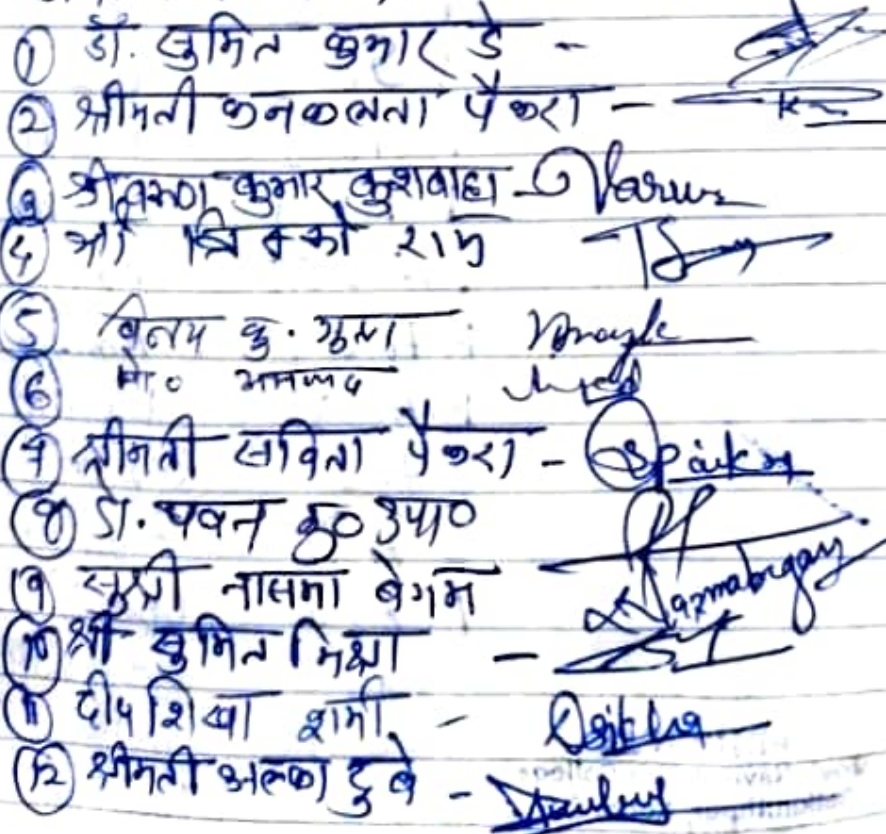 ① डॉ. सुमित कुमार डे -
② श्रीमती कनकलता पैकरा -
③ श्री वरूण कुमार कुशवाहा - Varun
④ श्री राम
⑤ विनय कु. गुप्ता Vinayk
⑥ मो०
⑦ श्रीमती सविता पैकरा - Spaikra
⑧ डॉ. पवन कु० उपा०
⑨ सुश्री नाजमा बेगम Nazmabegam
⑩ श्री सुमित मिश्रा -
⑪ दीपशिखा शर्मा -
⑫ श्रीमती अलका दुबे -